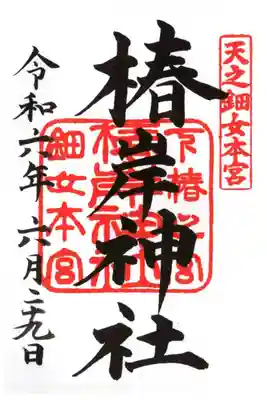 天之鈿女本宮
椿岸神社
鈿女本宮
令和六年 六月二十九日